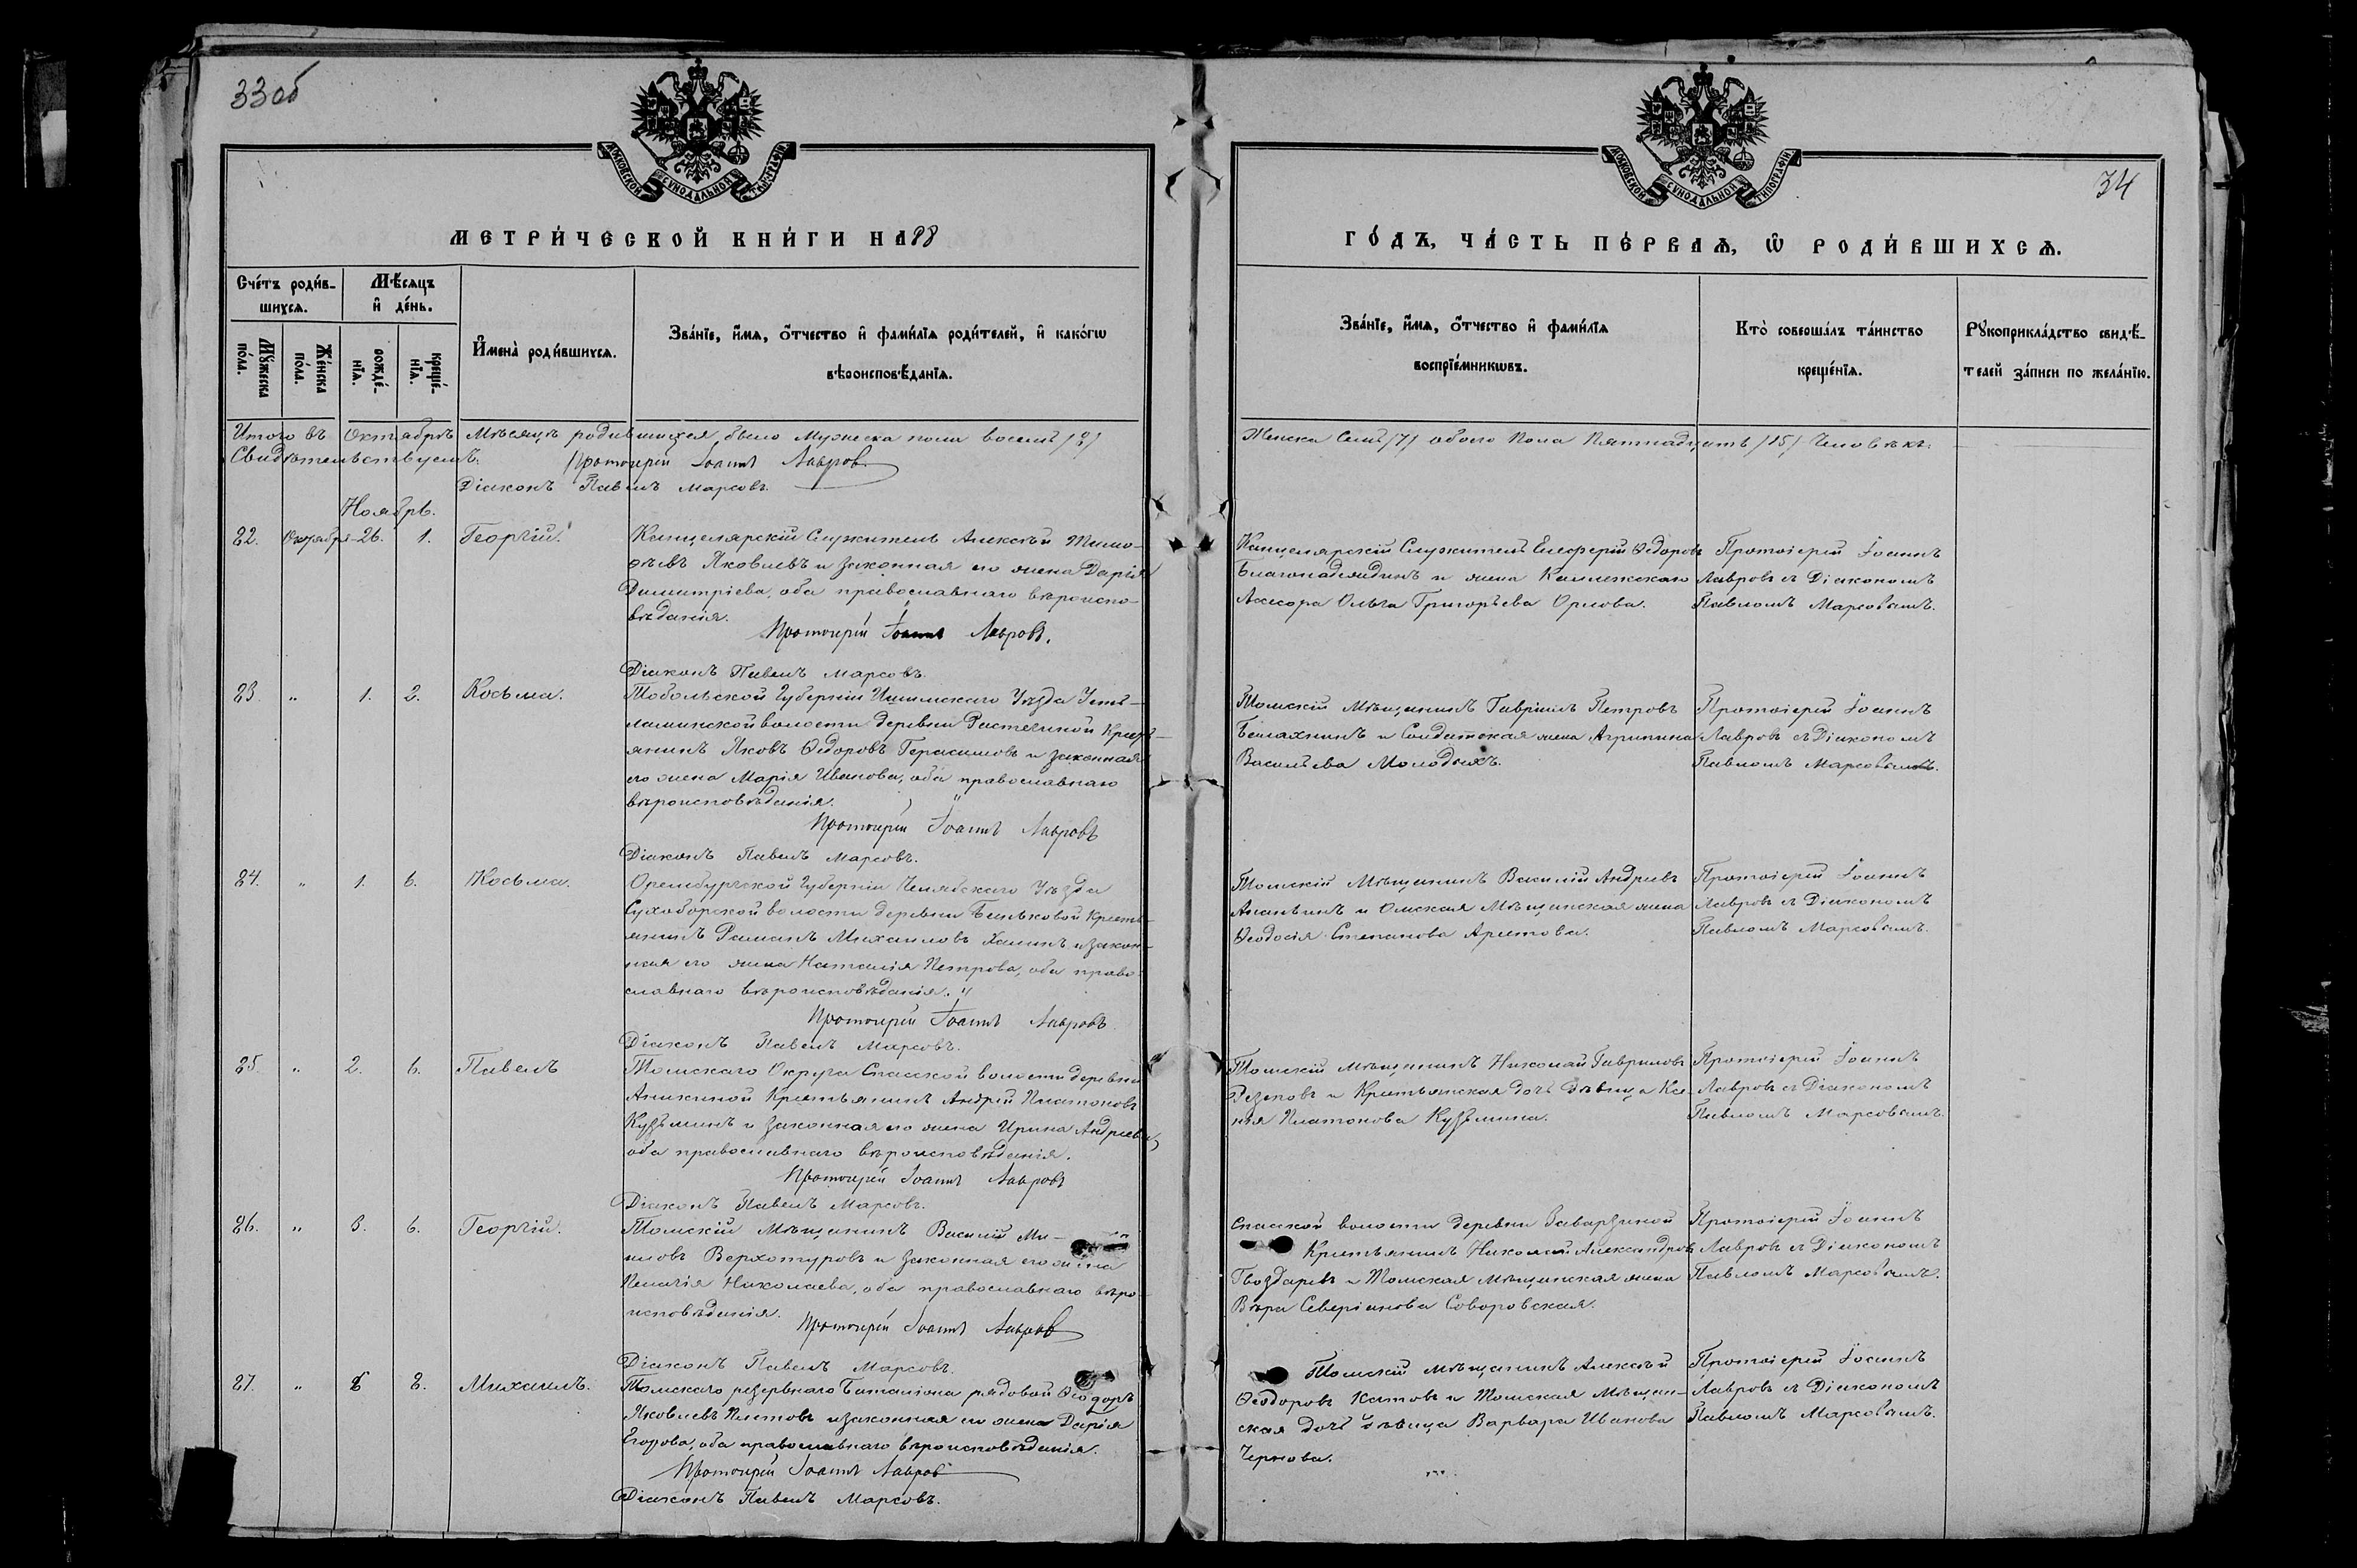 33об
МОСКОВСКОЙ СѴНОДАЛЬНОЙ ТИПОГРАФІИ
МЕТРИ́ЧЕСКОЙ КНИ́ГИ НА 88
Сче́тъ роди́в-
шихсѧ.
Мѣ́сѧцъ
и҆ де́нь.
Мꙋ́жеска
по́ла.
Же́нска
по́ла.
рожде́-
нїѧ.
креще́-
нїѧ.
И҆мена̀ роди́вшихсѧ.
Зва́нїе, и҆́мѧ, ѻ҆́тчество и҆ фами́лїѧ роди́телей, и҆ како́гѡ
вѣроисповѣ́данїѧ.
Итого въ Октябрѣ Мѣсяцѣ родившихся, было Мужеска пола восемь /8/
Свидѣтельствуемъ: Протоіерей Іоаннъ Лавровъ
Діаконъ Павелъ Марсовъ.
Ноябрь.
82. Октября 26. 1. Георгій. Канцелярскій Служитель Алексѣй Тимо-
ѳеевъ Яковлевъ и законная его жена Дарія
Димитріева, оба православнаго вѣроиспо-
вѣданія.
Протоіерей Іоаннъ Лавровъ.
Діаконъ Павелъ Марсовъ.
83. " 1. 2. Косьма. Тобольской Губерніи Ишимскаго Уѣзда Усть-
ламинской волости деревни Крестъ-
янинъ Яковъ Ѳедоровъ Герасимовъ и законная
его жена Марія Иванова, оба православнаго
вѣроисповѣданія.
Протоіерей Іоаннъ Лавровъ
Діаконъ Павелъ Марсовъ.
84. " 1. 6. Косьма. Оренбургской Губерніи Челябскаго Уѣзда
Сухоборской волости деревни Крестъ-
янинъ Романъ Михаиловъ и закон-
ная его жена Наталія Петрова, оба право-
славнаго вѣроисповѣданія.
Протоіерей Іоаннъ Лавровъ
Діаконъ Павелъ Марсовъ.
85. " 2. 6. Павелъ Томскаго Округа Спасской волости деревни
Аникиной Крестьянинъ Андрей Платоновъ
Кузьминъ и законная его жена Ирина Андреева,
оба православнаго вѣроисповѣданія.
Протоіерей Іоаннъ Лавровъ
Діаконъ Павелъ Марсовъ.
86. " 3. 6. Георгій. Томскій Мѣщанинъ Василій Ми-
иловъ Верхотуровъ и законная его жена
Пелагія Николаева, оба православнаго вѣро-
исповѣданія.
Протоіерей Іоаннъ Лавровъ
Діаконъ Павелъ Марсовъ.
87. " 8. Михаилъ. Томскаго резервнаго Баталіона рядовой Ѳеодоръ
Яковлевъ и законная его жена Дарія
Егорова, оба православнаго вѣроисповѣданія.
Протоіерей Іоаннъ Лавровъ
Діаконъ Павелъ Марсовъ.
34
МОСКОВСКОЙ СѴНОДАЛЬНОЙ ТИПОГРАФІИ
ГО́ДЪ, ЧА́СТЬ ПЕ́РВАѦ, Ѡ҆ РОДИ́ВШИХСѦ.
Зва́нїе, и҆́мѧ, ѻ҆́тчество и҆ фами́лїѧ
воспрїе́мникѡвъ.
Кто̀ соверша́лъ та́инство
креще́нїѧ.
Рꙋкоприкла́дство свидѣ́-
телей за́писи по жела́нїю.
Женска Семь /7/ обоего Пола Пятнадцать /15/ Человѣкъ.
Канцелярскій Служитель Елеѳерій Ѳедоровъ
Благонадеждинъ и жена Коллежскаго
Ассесора Ольга Григорьева Орлова.
Протоіерей Іоаннъ
Лавровъ съ Діакономъ
Павломъ Марсовымъ.
Томскій Мѣщанинъ Гавріилъ Петровъ
и Солдатская жена Агрипина
Васильева Молодыхъ.
Протоіерей Іоаннъ
Лавровъ съ Діакономъ
Павломъ Марсовымъ.
Томскій Мѣщанинъ Василій Андреевъ
Ананьинъ и Омская Мѣщанская жена
Ѳеодосія Степанова Арестова.
Протоіерей Іоаннъ
Лавровъ съ Діакономъ
Павломъ Марсовымъ.
Томскій мѣщанинъ Николай Гавриловъ
Резеповъ и Крестьянская дочь дѣвица Ксе-
нія Платонова Кузьмина.
Протоіерей Іоаннъ
Лавровъ съ Діакономъ
Павломъ Марсовымъ.
Спасской волости деревни Заварзиной
Крестьянинъ Николай Александровъ
Гвоздаревъ и Томская Мѣщанская жена
Вѣра Северіанова Соворовская.
Протоіерей Іоаннъ
Лавровъ съ Діакономъ
Павломъ Марсовымъ.
Томскій мѣщанинъ Алексѣй
Ѳеодоровъ Катовъ и Томская Мѣщан-
ская дочь дѣвица Варвара Иванова
Чернова.
Протоіерей Іоаннъ
Лавровъ съ Діакономъ
Павломъ Марсовымъ.